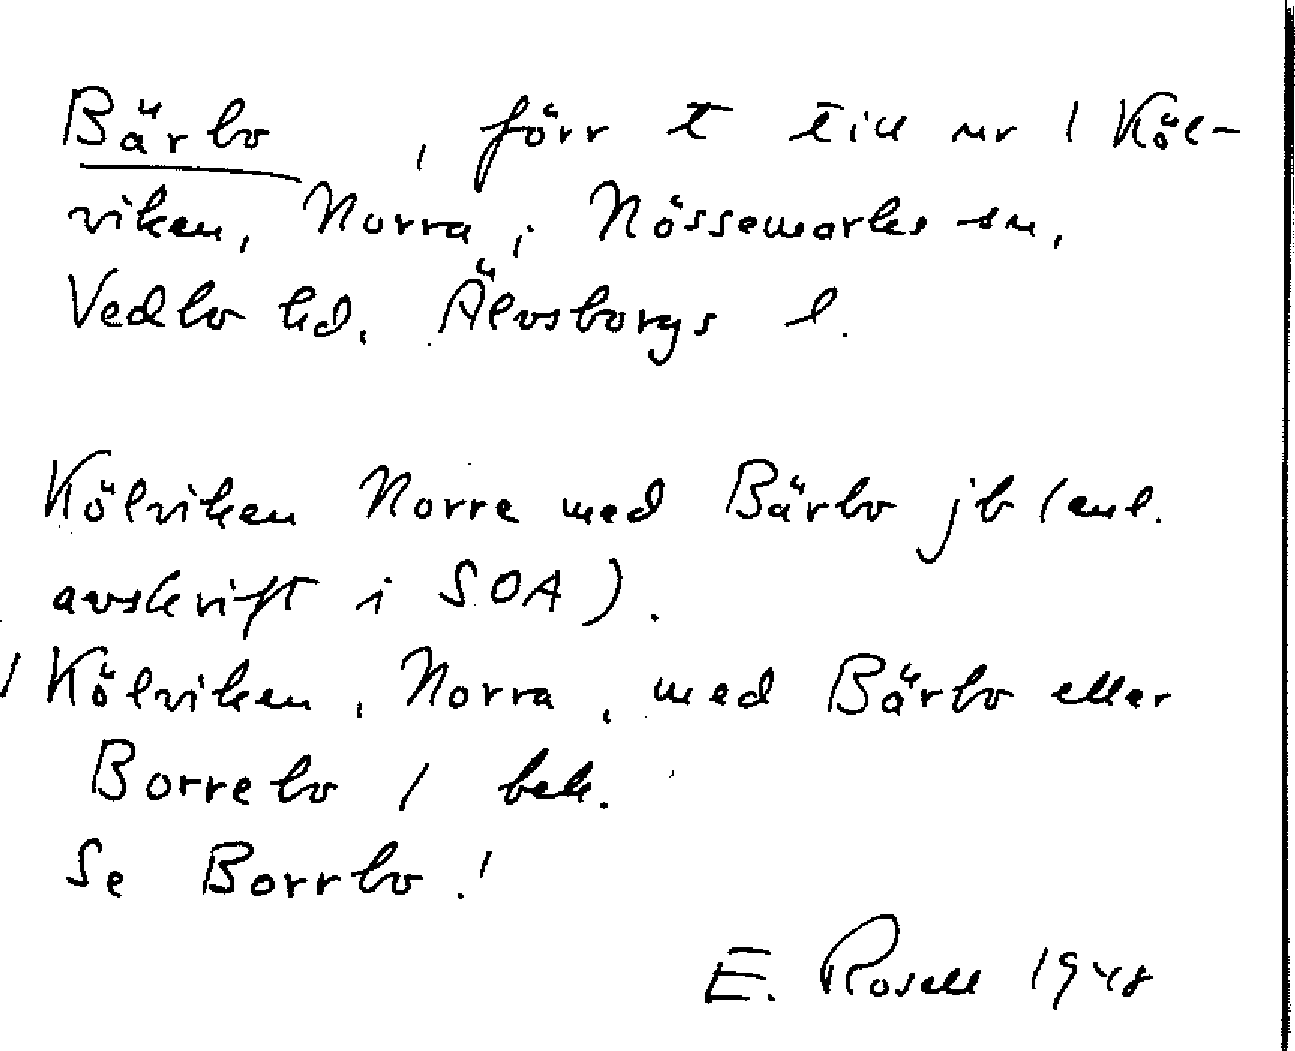 Bärbo, förr t till nr 1 Köl-
viken, Norra, i Nössemarks sn,
Vedbo hd. Älvsborgs l.
Kölviken Norre med Bärbo jb (enl.
avskrift i SOA).
1 Kölviken, Norra, med Bärbo eller
Borrebo 1 bek.
Se Borrbo!
E. Rosell 1948